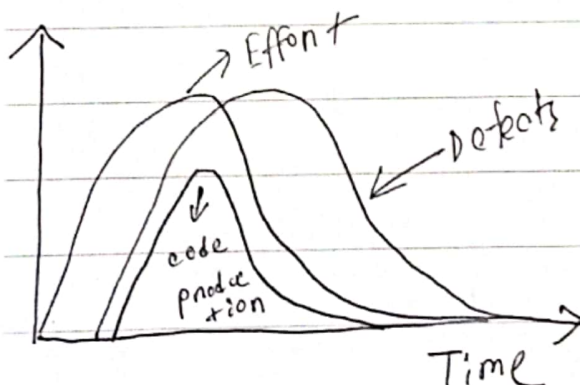 Effort
Defects
code
produc
tion
Time